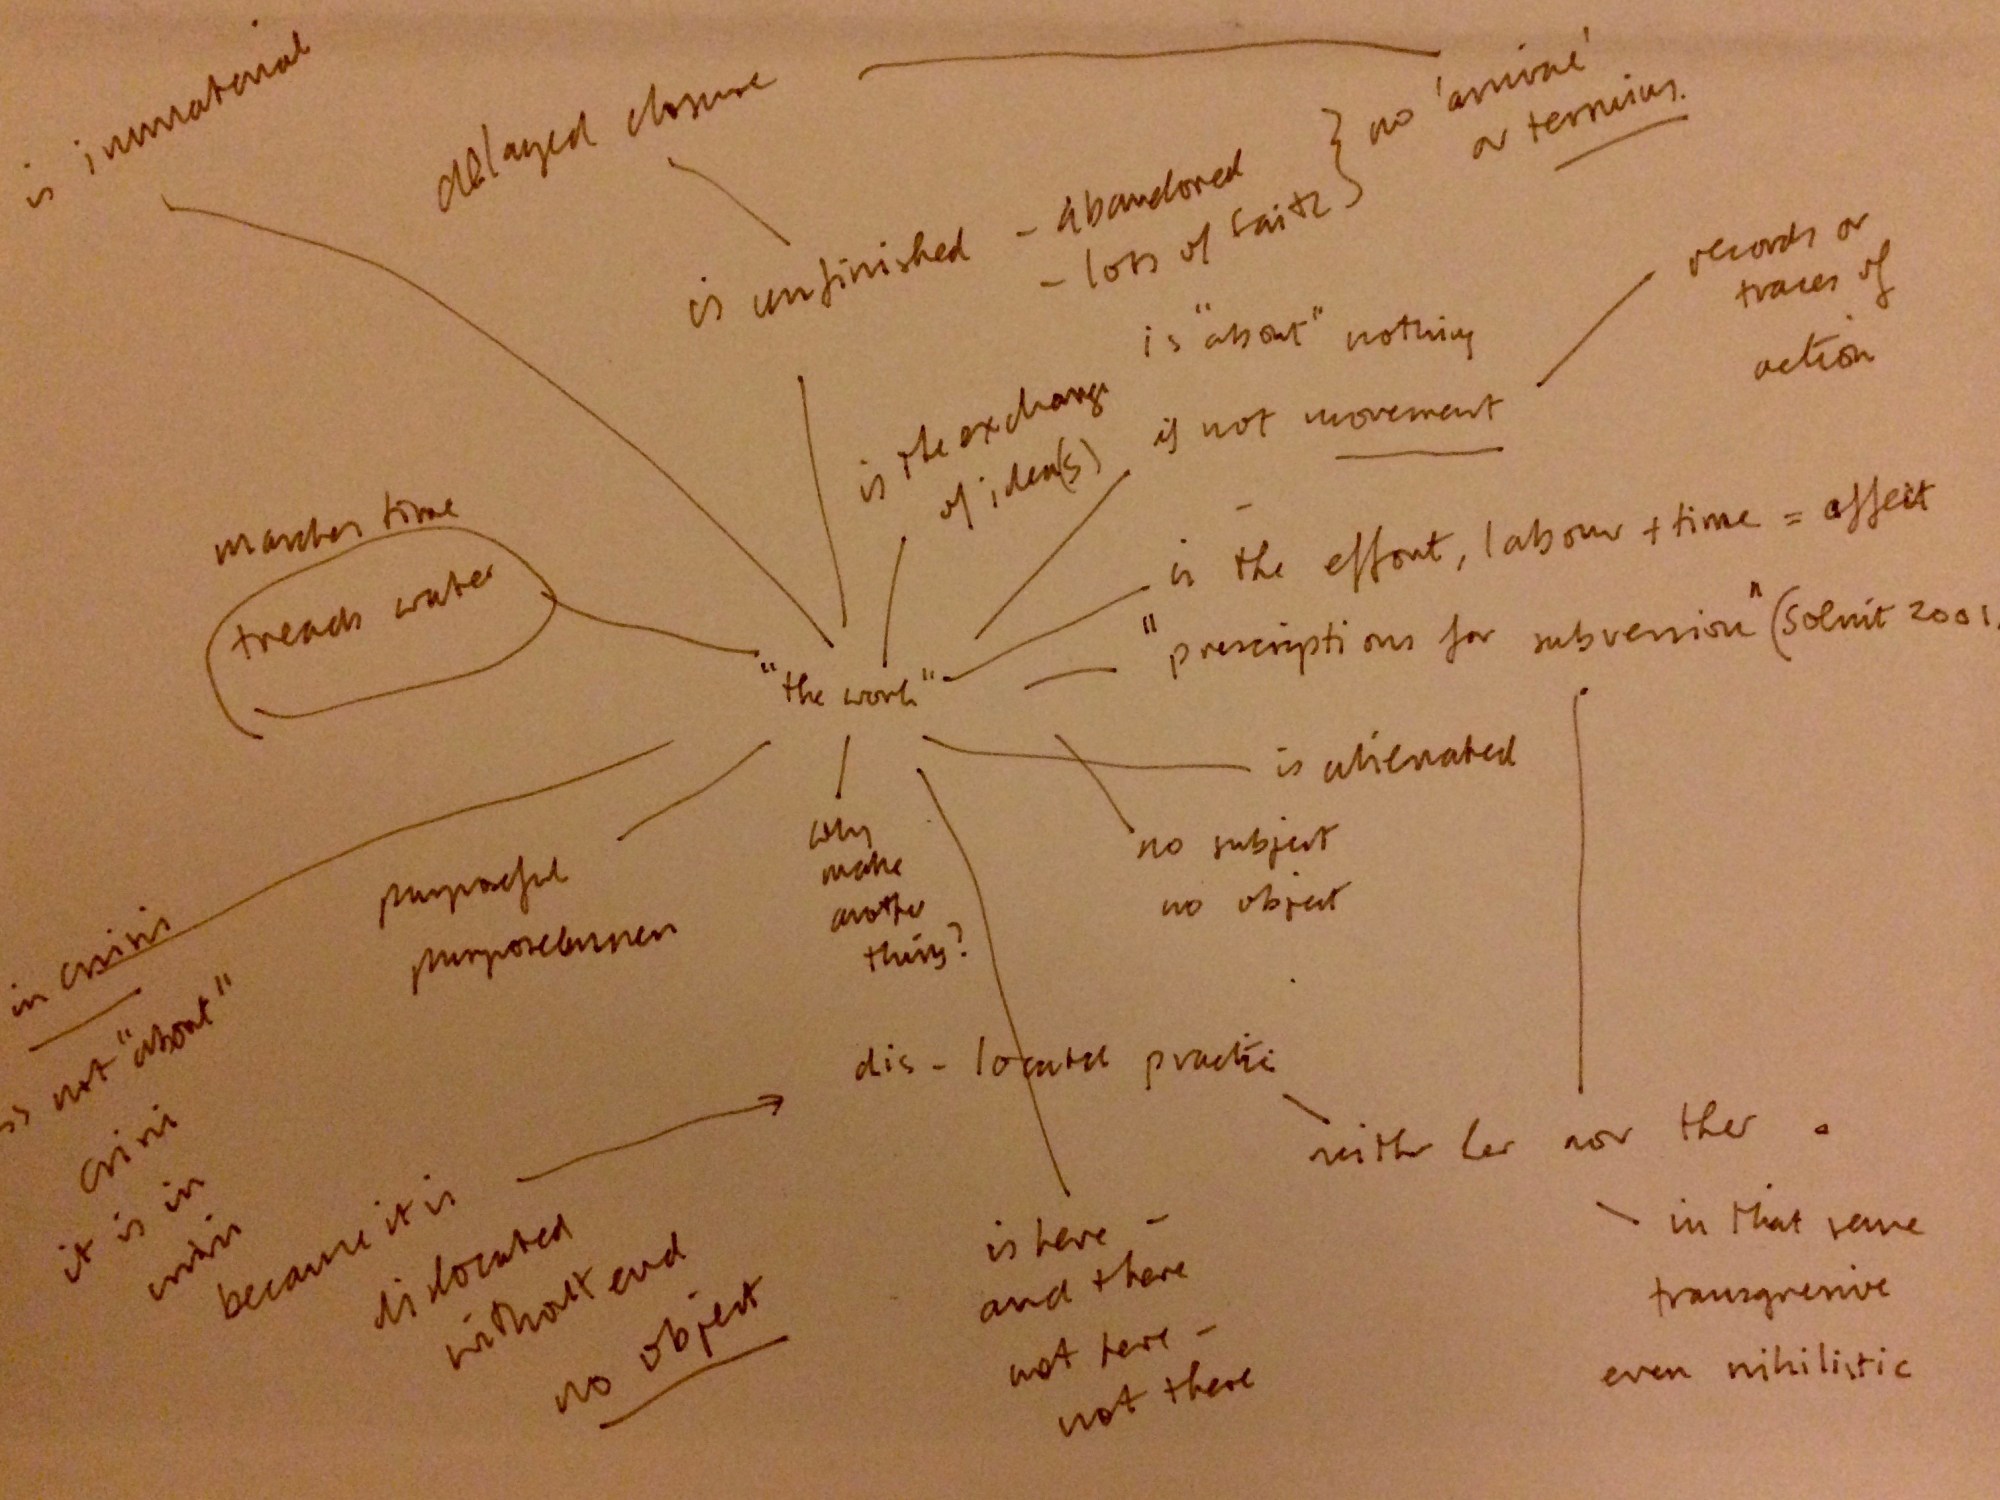 is immaterial
delayed closure
is unfinished
- abandoned
- loss of faith
no 'arrival'
or terminus.
records or
traces of
action
is "about" nothing
is not movement
is the exchange
of idea(s)
is the effort, labour + time = affect
"prescriptions for subversion" (Solnit 2001,
marches time
treads water
"the work"
is alienated
no subject
no object
why
make
another
thing?
purposeful
purposelessness
in crisis
is not "about"
crisis
it is in
crisis
because it is
dislocated
without end
no object
dis-located practice
neither here nor there.
in that sense
transgressive
even nihilistic
is here -
and there
not here -
not there